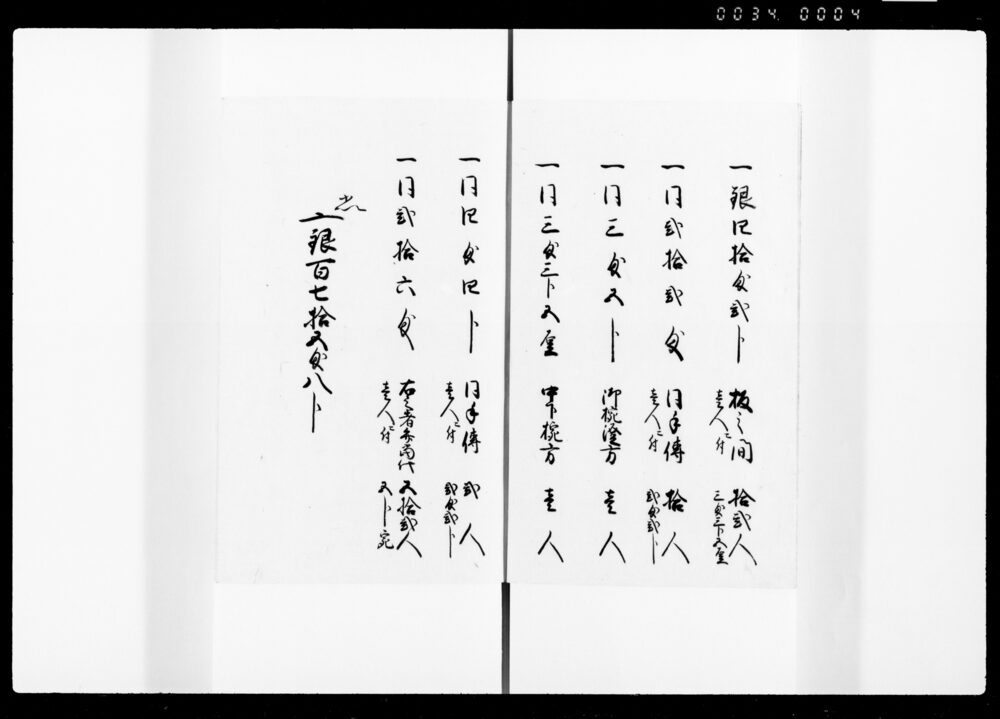 0034 0004
一銀四拾匁弐分 板之間 拾弐人
壱人ニ付 三匁三分五厘
一同弐拾弐匁 同手傳 拾人
壱人ニ付 弐匁弐分
一同三匁五分 御椀方 壱人
一同三匁三分五厘 中下椀方 壱人
一同四匁四分 同手傳 弐人
壱人ニ付 弐匁弐分
一同弐拾六匁 右之者弁当代 五拾弐人
壱人ニ付 五分宛
銀百七拾五匁八分